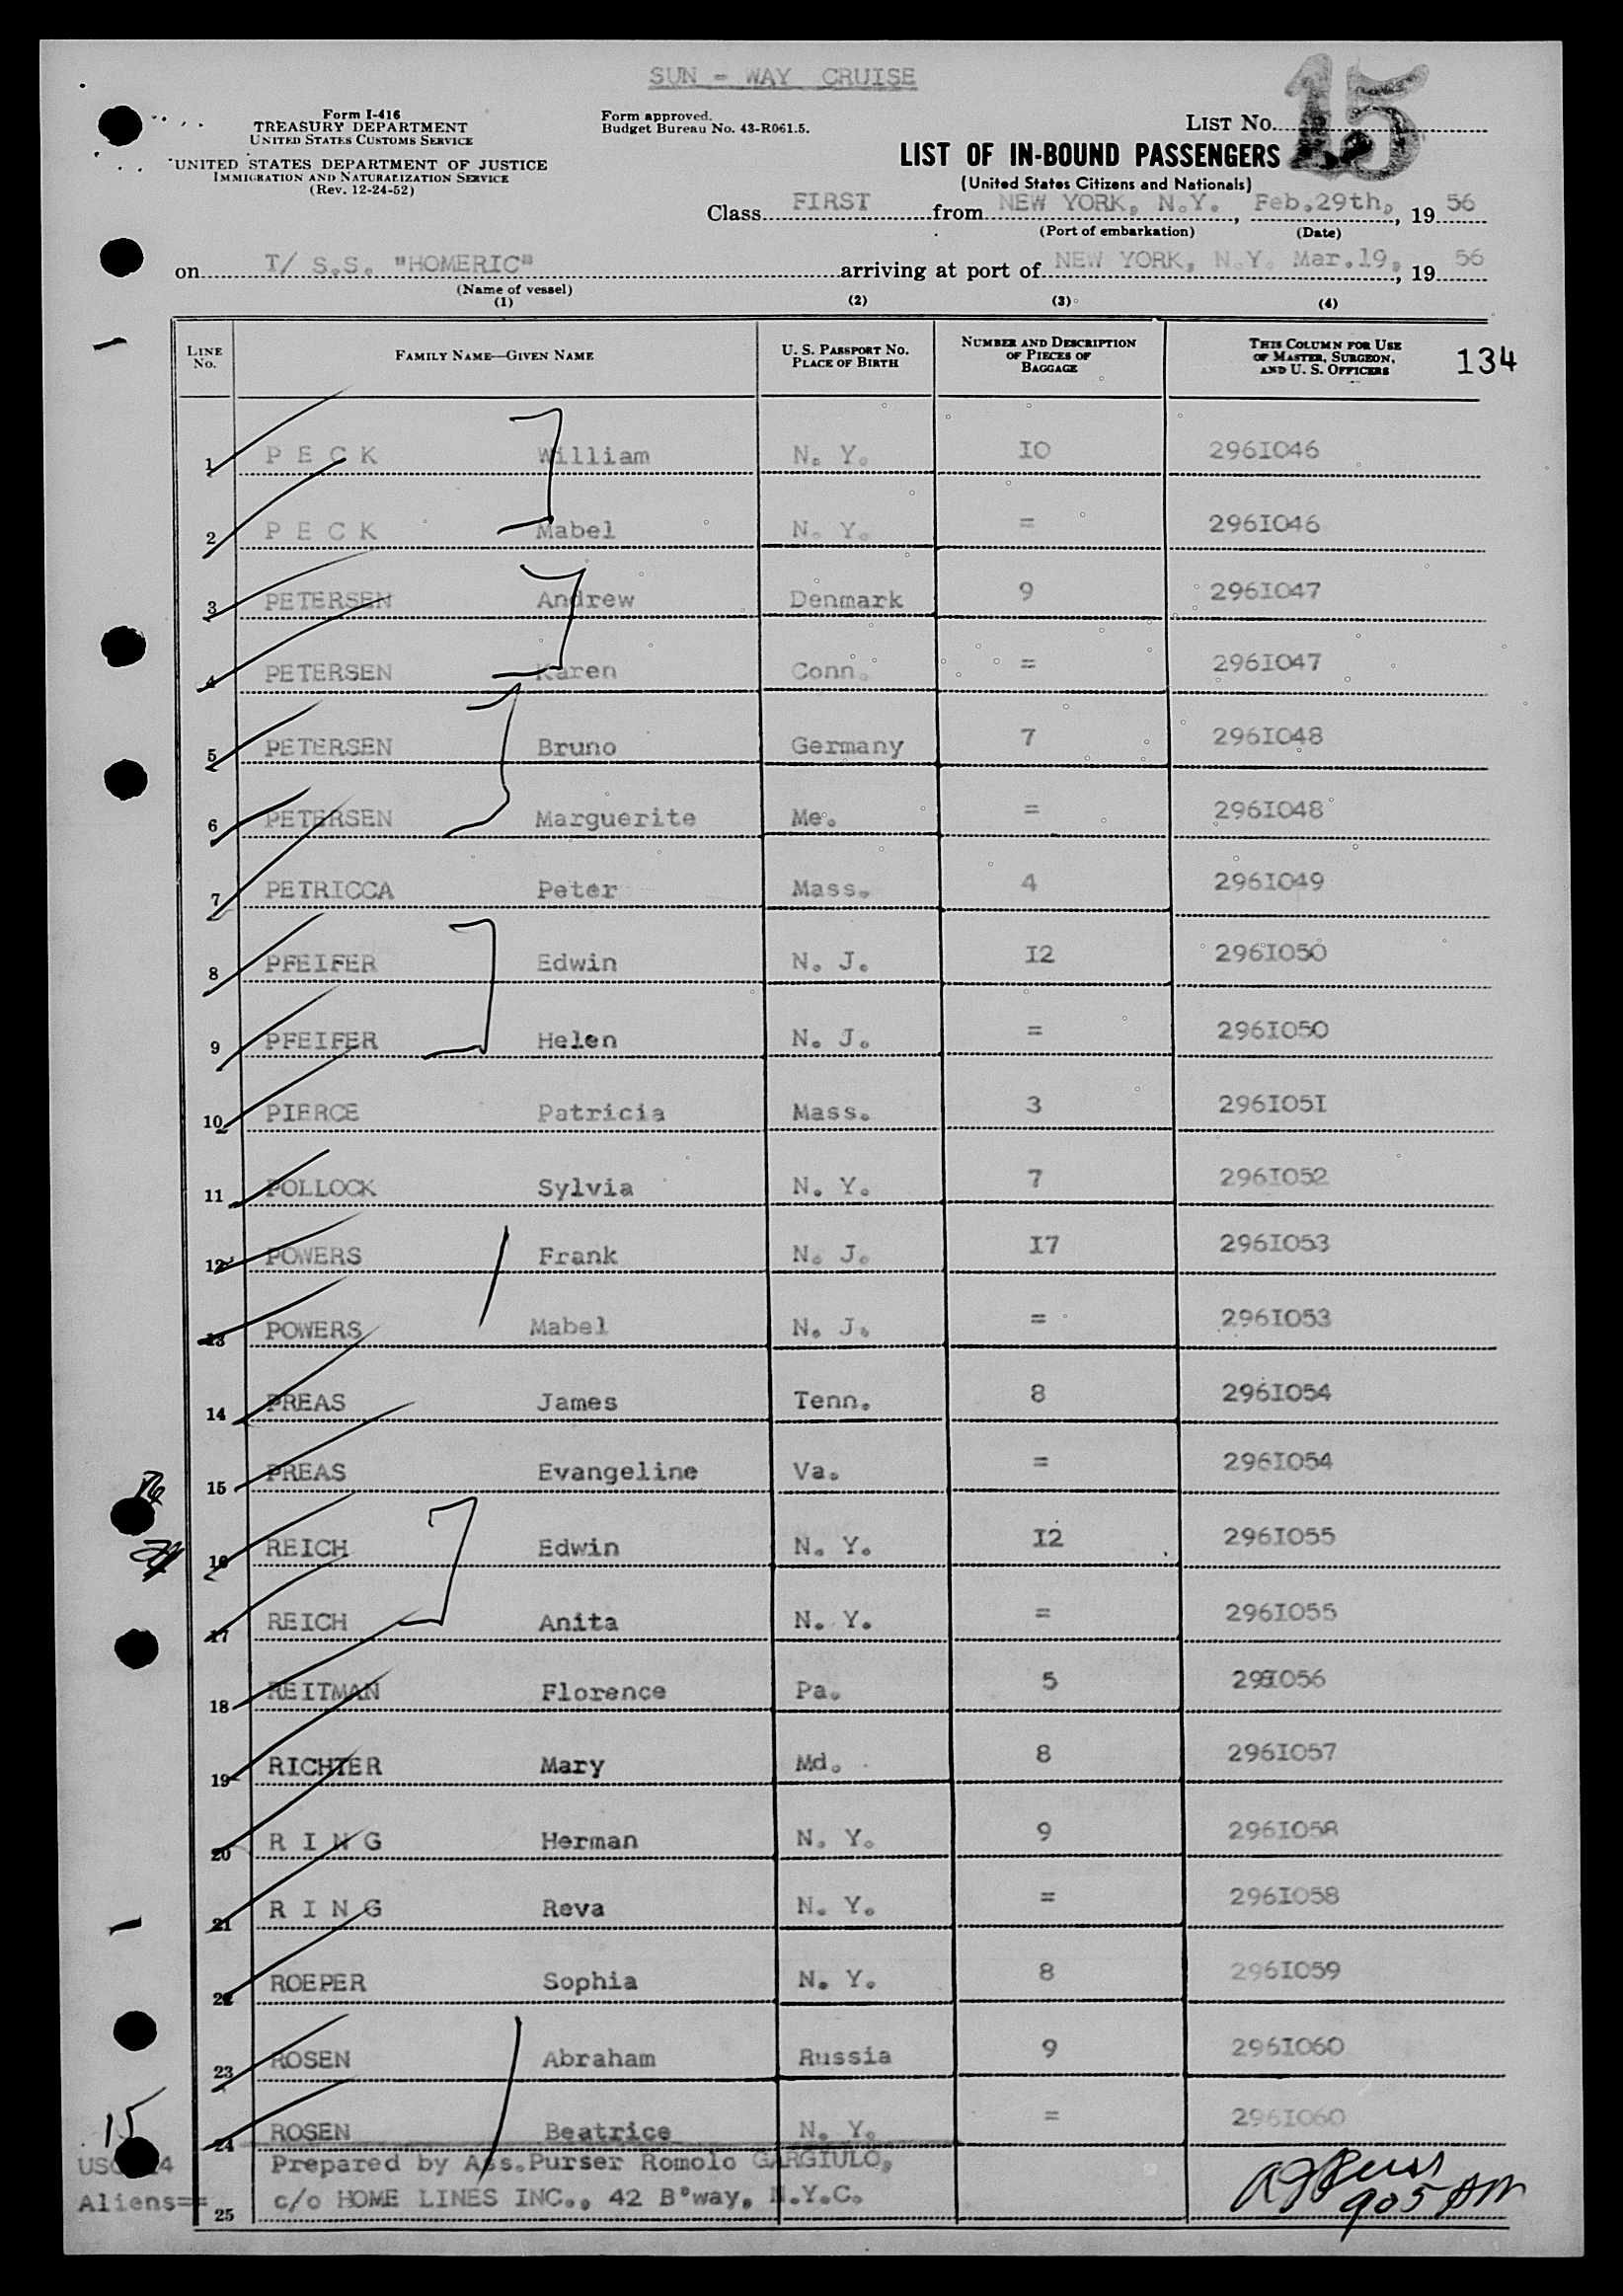 SUN - WAY CRUISE
Form I-416
TREASURY DEPARTMENT
UNITED STATES CUSTOMS SERVICE
UNITED STATES DEPARTMENT OF JUSTICE
IMMIGRATION AND NATURALIZATION SERVICE
(Rev. 12-24-52)
Form approved.
Budget Bureau No. 43-R061.5.
LIST No. 15
LIST OF IN-BOUND PASSENGERS
(United States Citizens and Nationals)
Class FIRST from NEW YORK, N.Y., Feb.29th, 19 56
(Port of embarkation) (Date)
on T/ S.S. "HOMERIC" arriving at port of NEW YORK, N.Y. Mar.19, 19 56
(Name of vessel)
(1) (2) (3) (4)
LINE No. FAMILY NAME—GIVEN NAME U. S. PASSPORT NO. PLACE OF BIRTH NUMBER AND DESCRIPTION OF PIECES OF BAGGAGE THIS COLUMN FOR USE OF MASTER, SURGEON, AND U. S. OFFICERS 134
1 P E C K William N. Y. IO 296IO46
2 P E C K Mabel N. Y. = 296IO46
3 PETERSEN Andrew Denmark 9 296IO47
4 PETERSEN Karen Conn. = 296IO47
5 PETERSEN Bruno Germany 7 296IO48
6 PETERSEN Marguerite Me. = 296IO48
7 PETRICCA Peter Mass. 4 296IO49
8 PFEIFER Edwin N. J. I2 296IO50
9 PFEIFER Helen N. J. = 296IO50
10 PIERCE Patricia Mass. 3 296IO5I
11 POLLOCK Sylvia N. Y. 7 296IO52
12 POWERS Frank N. J. I7 296IO53
13 POWERS Mabel N. J. = 296IO53
14 PREAS James Tenn. 8 296IO54
15 PREAS Evangeline Va. = 296IO54
16 REICH Edwin N. Y. I2 296IO55
17 REICH Anita N. Y. = 296IO55
18 REITMAN Florence Pa. 5 296IO56
19 RICHTER Mary Md. 8 296IO57
20 R I N G Herman N. Y. 9 296IO58
21 R I N G Reva N. Y. = 296IO58
22 ROEPER Sophia N. Y. 8 296IO59
23 ROSEN Abraham Russia 9 296IO60
24 ROSEN Beatrice N. Y. = 296IO60
15
Prepared by Ass.Purser Romolo GARGIULO,
Aliens== 25 c/o HOME LINES INC., 42 B'way, N.Y.C.
905 AM